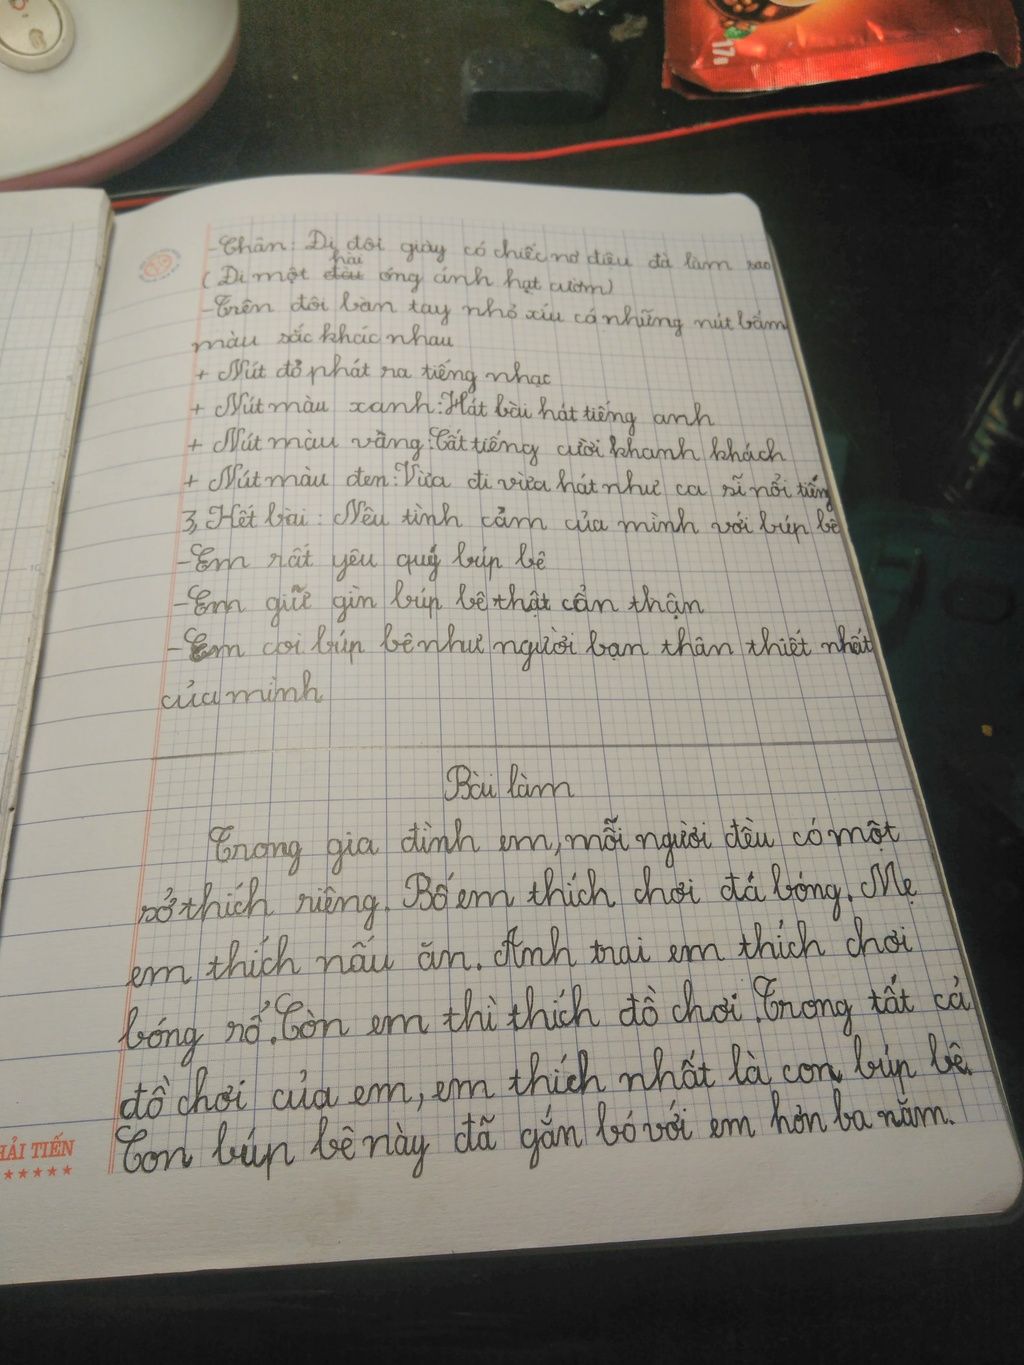 17g
- Chân: Đi đôi giày có chiếc nơ điêu đà làm sao
(Đi một đôi hài óng ánh hạt cườm)
- Trên đôi bàn tay nhỏ xíu có những nút bấm
màu sắc khác nhau
+ Nút đỏ phát ra tiếng nhạc
+ Nút màu xanh: Hát bài hát tiếng anh
+ Nút màu vàng: Cất tiếng cười khanh khách
+ Nút màu đen: Vừa đi vừa hát như ca sĩ nổi tiếng
3, Kết bài: Nêu tình cảm của mình với búp bê
- Em rất yêu quý búp bê
- Em giữ gìn búp bê thật cẩn thận
- Em coi búp bê như người bạn thân thiết nhất
của mình
Bài làm
Trong gia đình em, mỗi người đều có một
sở thích riêng. Bố em thích chơi đá bóng. Mẹ
em thích nấu ăn. Anh trai em thích chơi
bóng rổ. Còn em thì thích đồ chơi. Trong tất cả
đồ chơi của em, em thích nhất là con búp bê.
Con búp bê này đã gắn bó với em hơn ba năm.
HẢI TIẾN